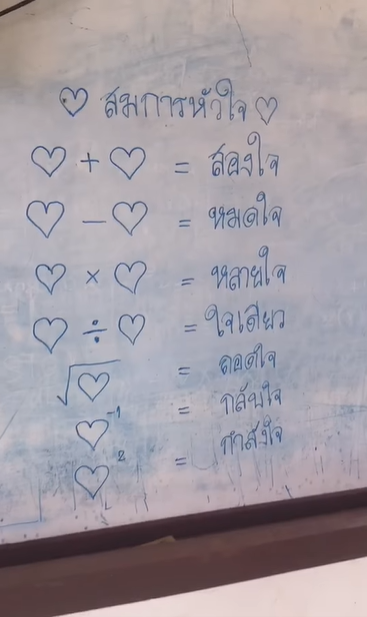 ♡ สมการหัวใจ ♡
♡ + ♡ = สองใจ
♡ - ♡ = หมดใจ
♡ × ♡ = หลายใจ
♡ ÷ ♡ = ใจเดียว
√♡ = ถอดใจ
♡⁻¹ = กลับใจ
♡² = กำลังใจ